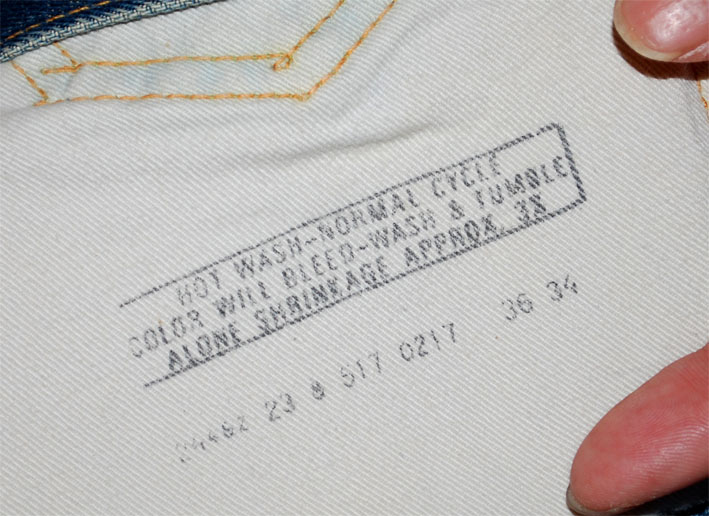 HOT WASH-NORMAL CYCLE
COLOR WILL BLEED-WASH & TUMBLE
ALONE SHRINKAGE APPROX. 3%
23 8 517 0217 36 34